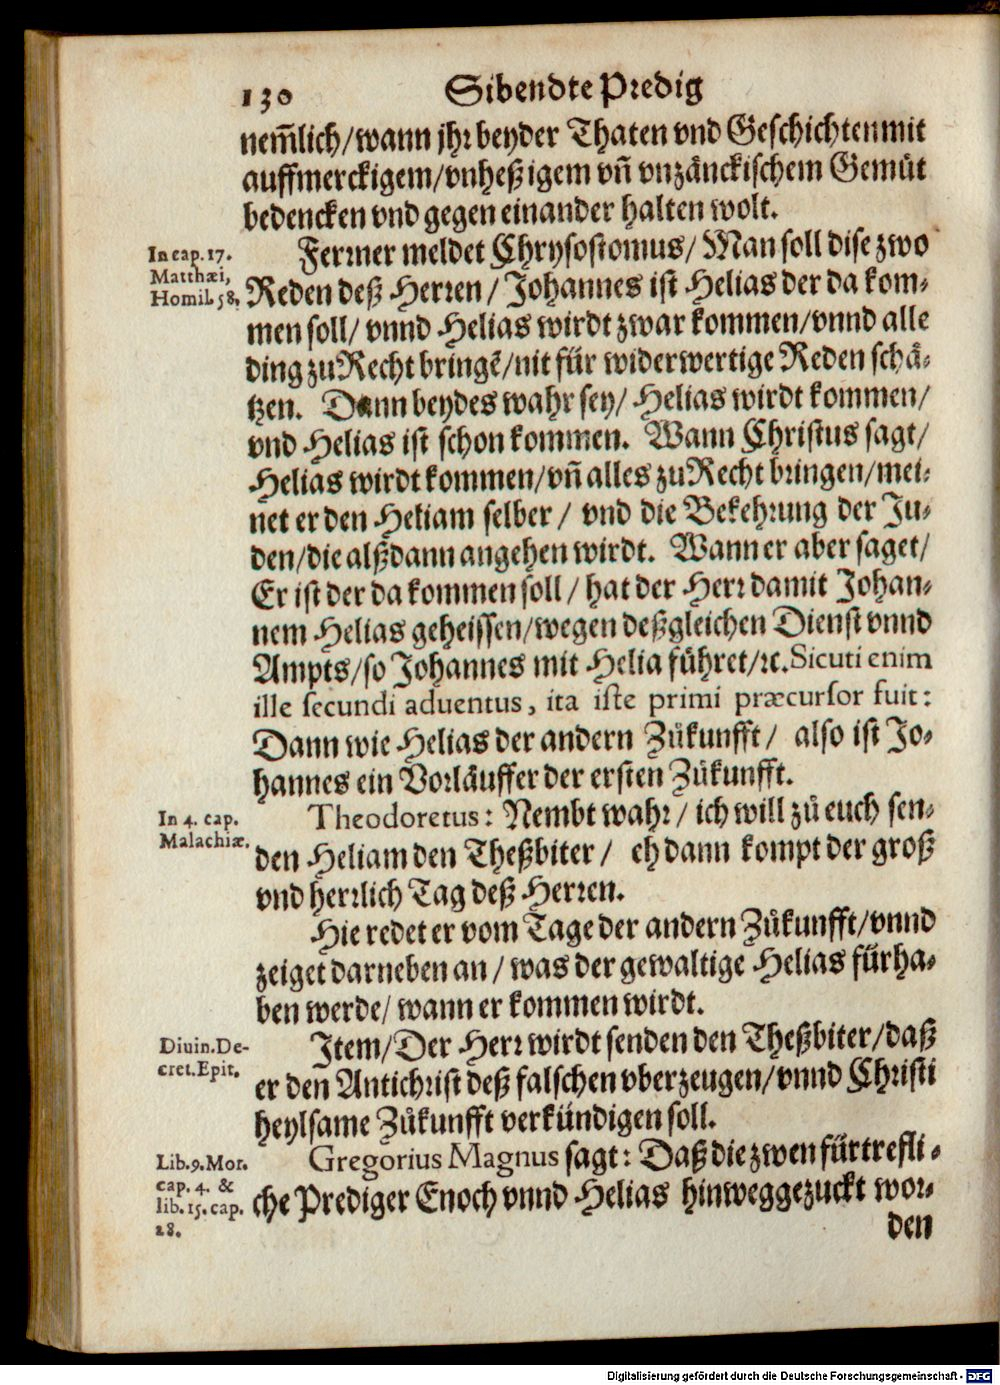 130 Sibendte Predig
nem̃lich/wann jhr beyder Thaten vnd Geschichten mit
auffmerckigem/vnheßigem vñ vnzänckischem Gemüt
bedencken vnd gegen einander halten wolt.
In cap. 17.
Matthæi,
Homil. 58.
Ferrner meldet Chrysostomus/ Man soll dise zwo
Reden deß Herren / Johannes ist Helias der da kom-
men soll/ vnnd Helias wirdt zwar kommen/vnnd alle
ding zu Recht bringẽ/nit für widerwertige Reden schä-
tzen. Dann beydes wahr sey/ Helias wirdt kommen/
vnd Helias ist schon kommen. Wann Christus sagt/
Helias wirdt kommen/vñ alles zu Recht bringen/mei-
net er den Heliam selber / vnd die Bekehrung der Ju-
den/die alßdann angehen wirdt. Wann er aber saget/
Er ist der da kommen soll / hat der Herr damit Johan-
nem Helias geheissen/wegen deßgleichen Dienst vnnd
Ampts/so Johannes mit Helia führet/ꝛc. Sicuti enim
ille secundi aduentus, ita iste primi præcursor fuit:
Dann wie Helias der andern Zůkunfft/ also ist Jo-
hannes ein Vorläuffer der ersten Zůkunfft.
In 4. cap.
Malachiæ.
Theodoretus: Nembt wahr / ich will zů euch sen-
den Heliam den Theßbiter / eh dann kompt der groß
vnd herrlich Tag deß Herren.
Hie redet er vom Tage der andern Zůkunfft/vnnd
zeiget darneben an / was der gewaltige Helias fürha-
ben werde/ wann er kommen wirdt.
Diuin. De-
cret. Epit.
Item/Der Herr wirdt senden den Theßbiter/daß
er den Antichrist deß falschen vberzeugen/vnnd Christi
heylsame Zůkunfft verkündigen soll.
Lib. 9. Mor.
cap. 4. &
lib. 15. cap.
28.
Gregorius Magnus sagt: Daß die zwen fürtrefli-
che Prediger Enoch vnnd Helias hinweggezuckt wor-
den
Digitalisierung gefördert durch die Deutsche Forschungsgemeinschaft - DFG